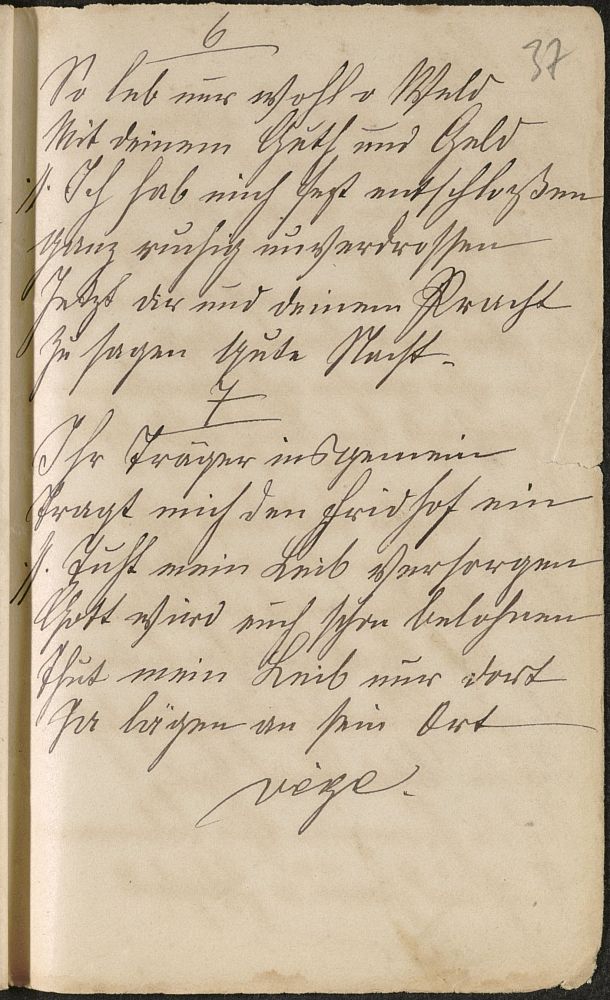 6
37
So leb nur wohl o Weld
Mit deinem Guth und Geld
//. Ich hab mich fest entschloßen
ganz ruhig unverdrossen
Jetzt dir und deinem Pracht
Zu sagen Gute Nacht.
7
Ihr Träger insgemein
Tragt mich den Fridhof ein
//. Tuht mein Leib versorgen
Gott wird euch schon belohnen
Thut mein Leib nur dort
Ja lägen an sein Ort
vége.